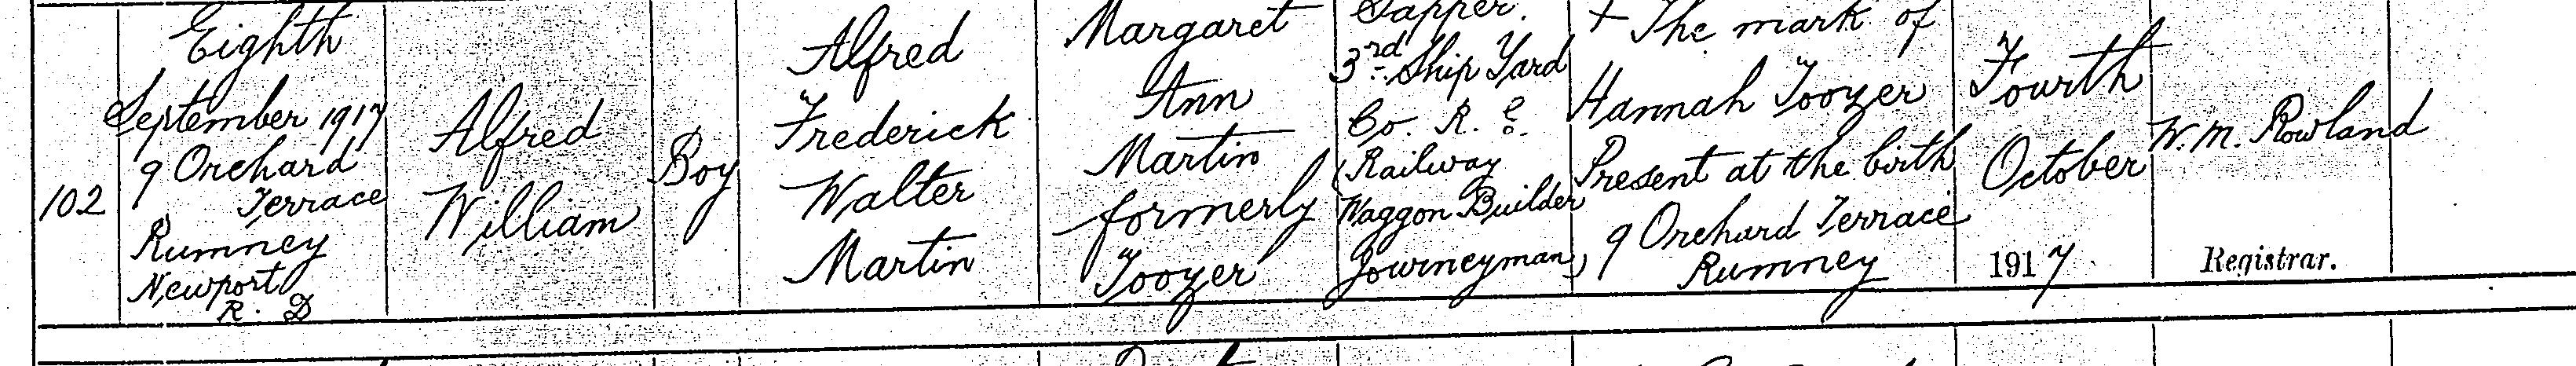 102
Eighth
September 1917
9 Orchard
Terrace
Rumney
Newport
R. D
Alfred
William
Boy
Alfred
Frederick
Walter
Martin
Margaret
Ann
Martin
formerly
Toozer
Sapper.
3rd Ship Yard
Co. R. E.
(Railway
Waggon Builder
Journeyman)
+ The mark of
Hannah Toozer
Present at the birth
9 Orchard Terrace
Rumney
Fourth
October
1917
W. M. Rowland
Registrar.